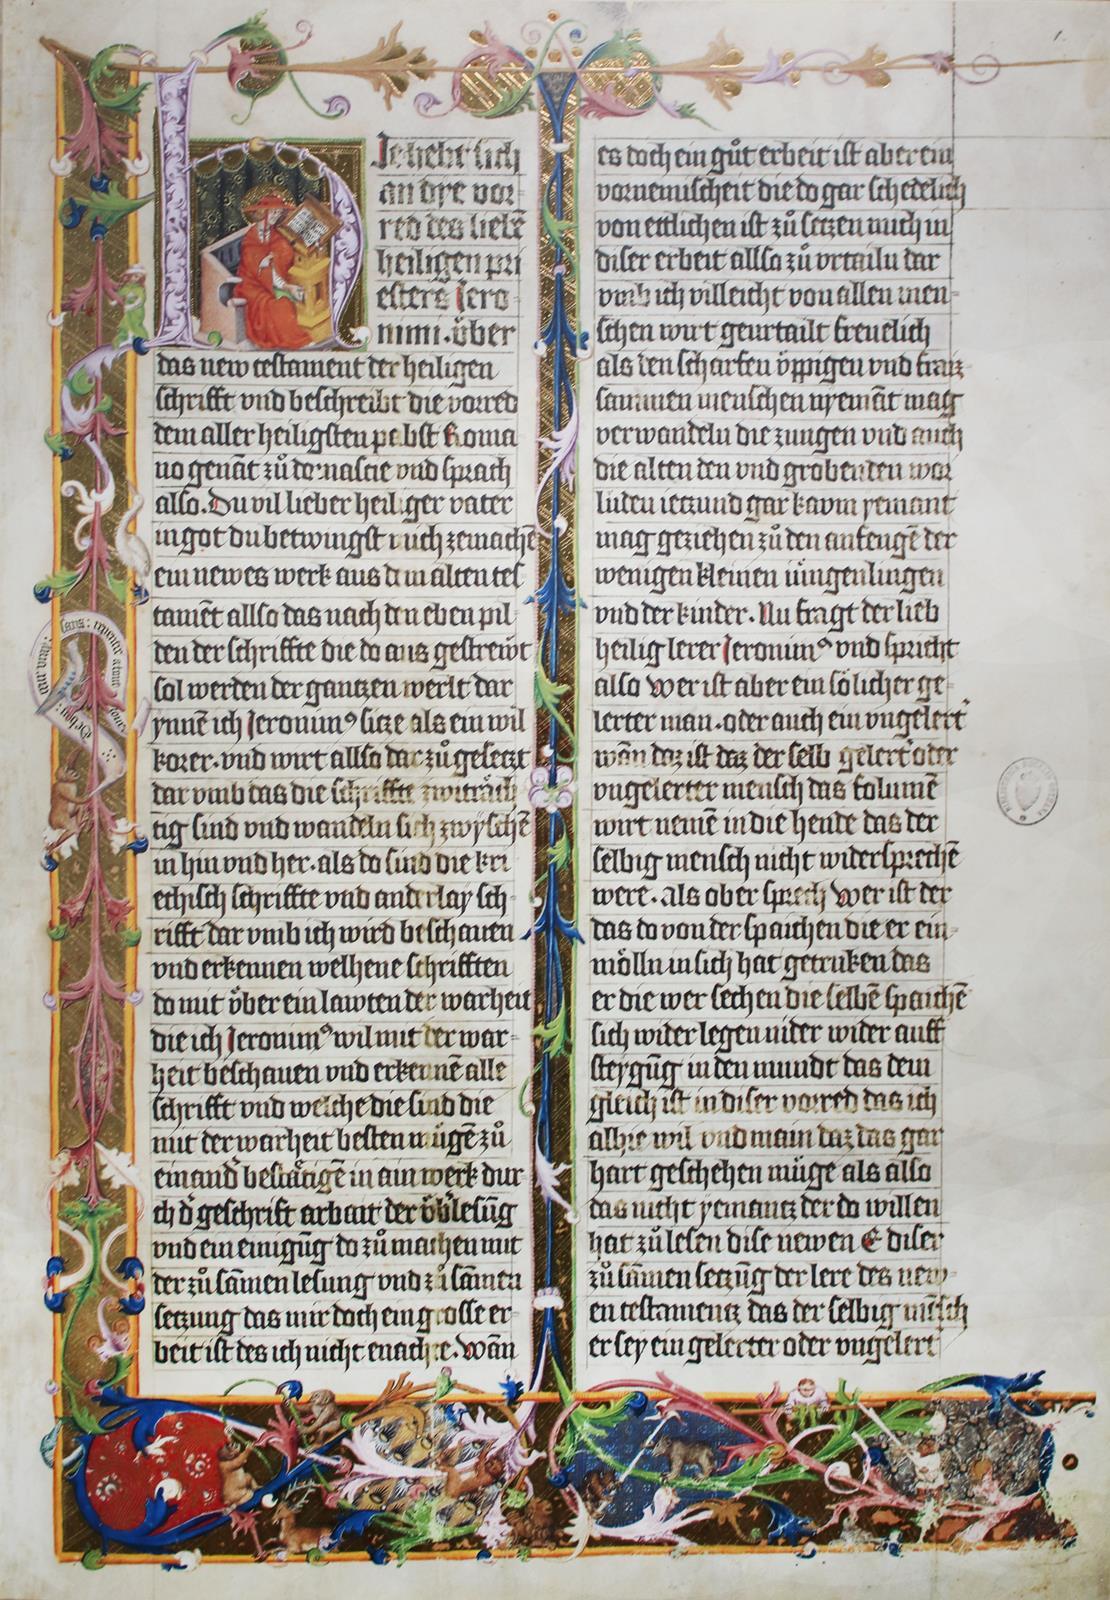 Hie hebt sich
an dye vor-
red des liebē
heiligen pri
esters Jero-
nimi. über
das new testament der heiligen
schrifft vnd beschreibt die vorred
dem aller heiligsten pabst Roma
no genāt zů damascie vnd sprach
also. Du vil lieber heiliger vater
in got du betwingst mich ze machē
ein newes werk aus dem alten tes-
tamēt allso das nach den eben pil-
den der schriffte die do aus gestrewt
sol werden der gantzen werlt dar
ynnē ich Jeronimꝰ sitze als ein wil
korer. vnd wirt allso dar zů gesetzt
dar vmb das die schriffte zwiträch
tig sind vnd wandeln sich zwyschē
in hin vnd her. als do sind die kri
ethisch schriffte vnd anderlay sch-
rifft dar vmb ich wird beschauen
vnd erkennen welhene schrifften
do mit über ein lawten der warheit
die ich Jeronimꝰ wil mit der war-
heit beschauen vnd erkennē alle
schrifft vnd welche die sind die
mit der warheit besten mügē zů
einand bestätigē in ain werk dur-
ch d geschrift arbait der lesūg
vnd ein einigūg do zů machen mit
der zů sāmen lesung vnd zů sāmen
setzung das mir doch ein grosse er-
beit ist des ich nicht enachte. wān
es doch ein gůt erbeit ist aber ein
vornemischeit die do gar schedelich
von ettlichen ist zů setzen mich in
diser erbeit allso zů vrtailn dar
vmb ich villeicht von allen men-
schen wirt geurtailt freuelich
als den scharfen üppigen vnd fraiz-
samen menschen nyemāt mag
verwandeln die zungen vnd auch
die alten den vnd grobenden wor
luden ietzund gar kavm yemant
mag geziehen zů den anfengē der
wenigen kleinen iüngenlingen
vnd der kinder. Nu fragt der lieb
heilig lerer Jeronimꝰ vnd spricht
also Wer ist aber ein sölicher ge-
lerter man. oder auch ein vngelert
wān daz ist daz der selb gelert oder
vngelerter mensch das folumē
wirt nemē in die hende das der
selbig mensch nicht widersprechē
were. als ober sprech Wer ist der
das do von der spaichen die er ein-
mölln in sich hat getruken das
er die wer sechen die selbē spaichē
sich wider legen nider wider auff
steygūg in den mundt das dem
gleich ist in diser vorred das ich
alhie wil vnd main daz das gar
hart geschehen müge als also
das nicht yemantz der do willen
hat zů lesen dise newen E diser
zů sāmen setzūg der lere des new-
en testamentz das der selbig mēsch
er sey ein gelerter oder vngelert